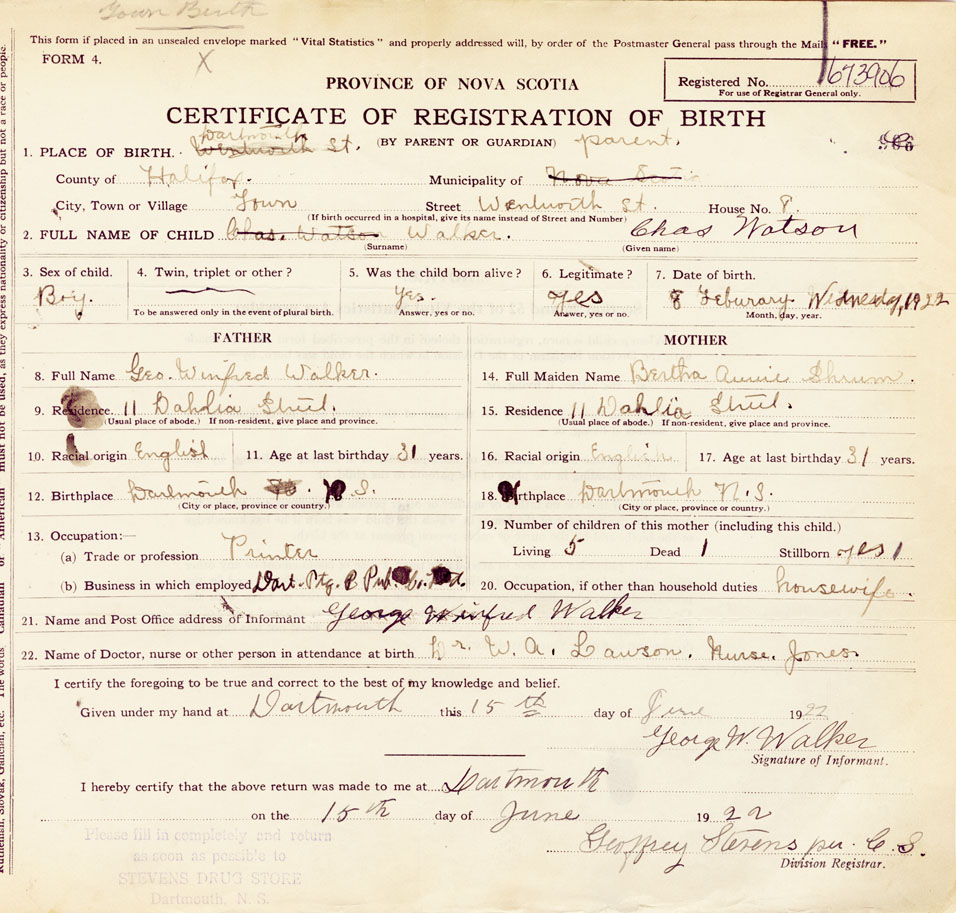 Town Birth
This form if placed in an unsealed envelope marked "Vital Statistics" and properly addressed will, by order of the Postmaster General pass through the Mails "FREE."
FORM 4.
X
PROVINCE OF NOVA SCOTIA
Registered No. 673906
For use of Registrar General only.
CERTIFICATE OF REGISTRATION OF BIRTH
Dartmouth
1. PLACE OF BIRTH. Wentworth St. (BY PARENT OR GUARDIAN) parent.
County of Halifax. Municipality of Nova Scotia
City, Town or Village Town Street Wentworth St. House No. 8.
(If birth occurred in a hospital, give its name instead of Street and Number)
2. FULL NAME OF CHILD Chas. Watson Walker. Chas Watson
(Surname) (Given name)
3. Sex of child. 4. Twin, triplet or other? 5. Was the child born alive? 6. Legitimate? 7. Date of birth.
Boy. Yes. yes 8 Feburary Wednesdy, 1922
To be answered only in the event of plural birth. Answer, yes or no. Answer, yes or no. Month, day, year.
FATHER MOTHER
8. Full Name Geo. Winfred Walker. 14. Full Maiden Name Bertha Annie Shrum.
9. Residence. 11 Dahlia Street. 15. Residence 11 Dahlia Street.
(Usual place of abode.) If non-resident, give place and province. (Usual place of abode.) If non-resident, give place and province.
10. Racial origin English 11. Age at last birthday 31 years. 16. Racial origin English 17. Age at last birthday 31 years.
12. Birthplace Dartmouth N.S. 18. Birthplace Dartmouth N.S.
(City or place, province or country.) (City or place, province or country.)
19. Number of children of this mother (including this child.)
13. Occupation:—
(a) Trade or profession Printer Living 5 Dead 1 Stillborn yes 1
(b) Business in which employed Dart. Ptg. & Pub. Co. Ltd. 20. Occupation, if other than household duties housewife.
21. Name and Post Office address of Informant George Winfred Walker
22. Name of Doctor, nurse or other person in attendance at birth Dr. W. A. Lawson. Nurse. Jones.
I certify the foregoing to be true and correct to the best of my knowledge and belief.
Given under my hand at Dartmouth this 15th day of June 1922
George W. Walker
Signature of Informant.
I hereby certify that the above return was made to me at Dartmouth
on the 15th day of June 1922
Geoffrey Stevens per. C. S.
Division Registrar.
Please fill in completely and return
as soon as possible to
STEVENS DRUG STORE
Dartmouth, N. S.
Ruthenian, Slovak, Galician, etc. The words Canadian or American must not be used, as they express nationality or citizenship but not a race or people.